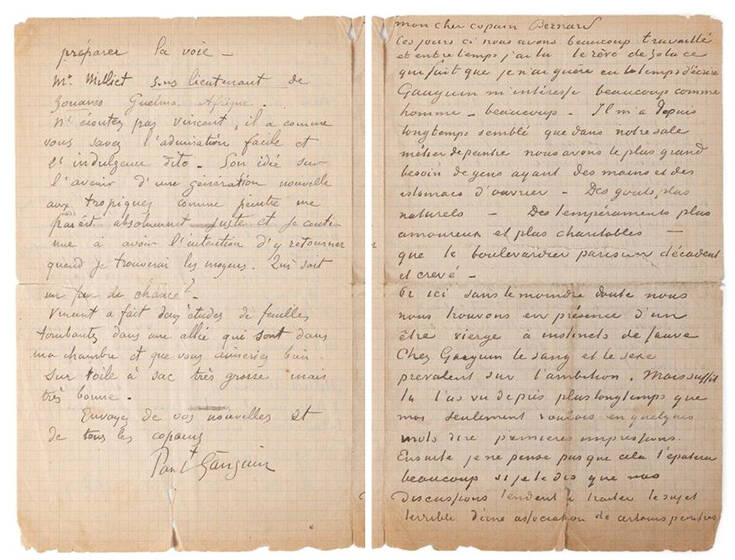 préparer la voie –
Mr Milliet sous lieutenant de
Zouaves Guelma Afrique.
N'écoutez pas Vincent, il a comme
vous savez l'admiration facile et
l'indulgence dito. Son idée sur
l'avenir d'une génération nouvelle
aux tropiques comme peintre me
paraît absolument juste et je conti-
nue à avoir l'intention d'y retourner
quand je trouverai les moyens. Qui sait
un peu de chance?
Vincent a fait deux études de feuilles
tombantes dans une allée qui sont dans
ma chambre et que vous aimeriez bien
sur toile à sac très grosse mais
très bonne.
Envoyez de vos nouvelles et
de tous les copains
Paul Gauguin
mon cher copain Bernard
Ces jours ci nous avons beaucoup travaillé
et entretemps j'ai lu le rêve de Zola ce
qui fait que je n'ai guère eu le temps d'écrire
Gauguin m'intéresse beaucoup comme
homme – beaucoup – Il m'a depuis
longtemps semblé que dans notre sale
métier de peintre nous avons le plus grand
besoin de gens ayant des mains et des
estomacs d'ouvrier – Des gouts plus
naturels – Des tempéraments plus
amoureux et plus charitables –
que le boulevardier parisien décadent
et crevé –
Or ici sans le moindre doute nous
nous trouvons en présence d'un
être vierge à instincts de fauve
Chez Gauguin le sang et le sexe
prevalent sur l'ambition. Mais suffit
tu l'as vu de près plus longtemps que
moi seulement voulais en quelques
mots dire premieres impressions.
Ensuite je ne pense pas que cela t'épatera
beaucoup si je te dis que nos
discussions tendent à traiter le sujet
terrible d'une association de certains peintres